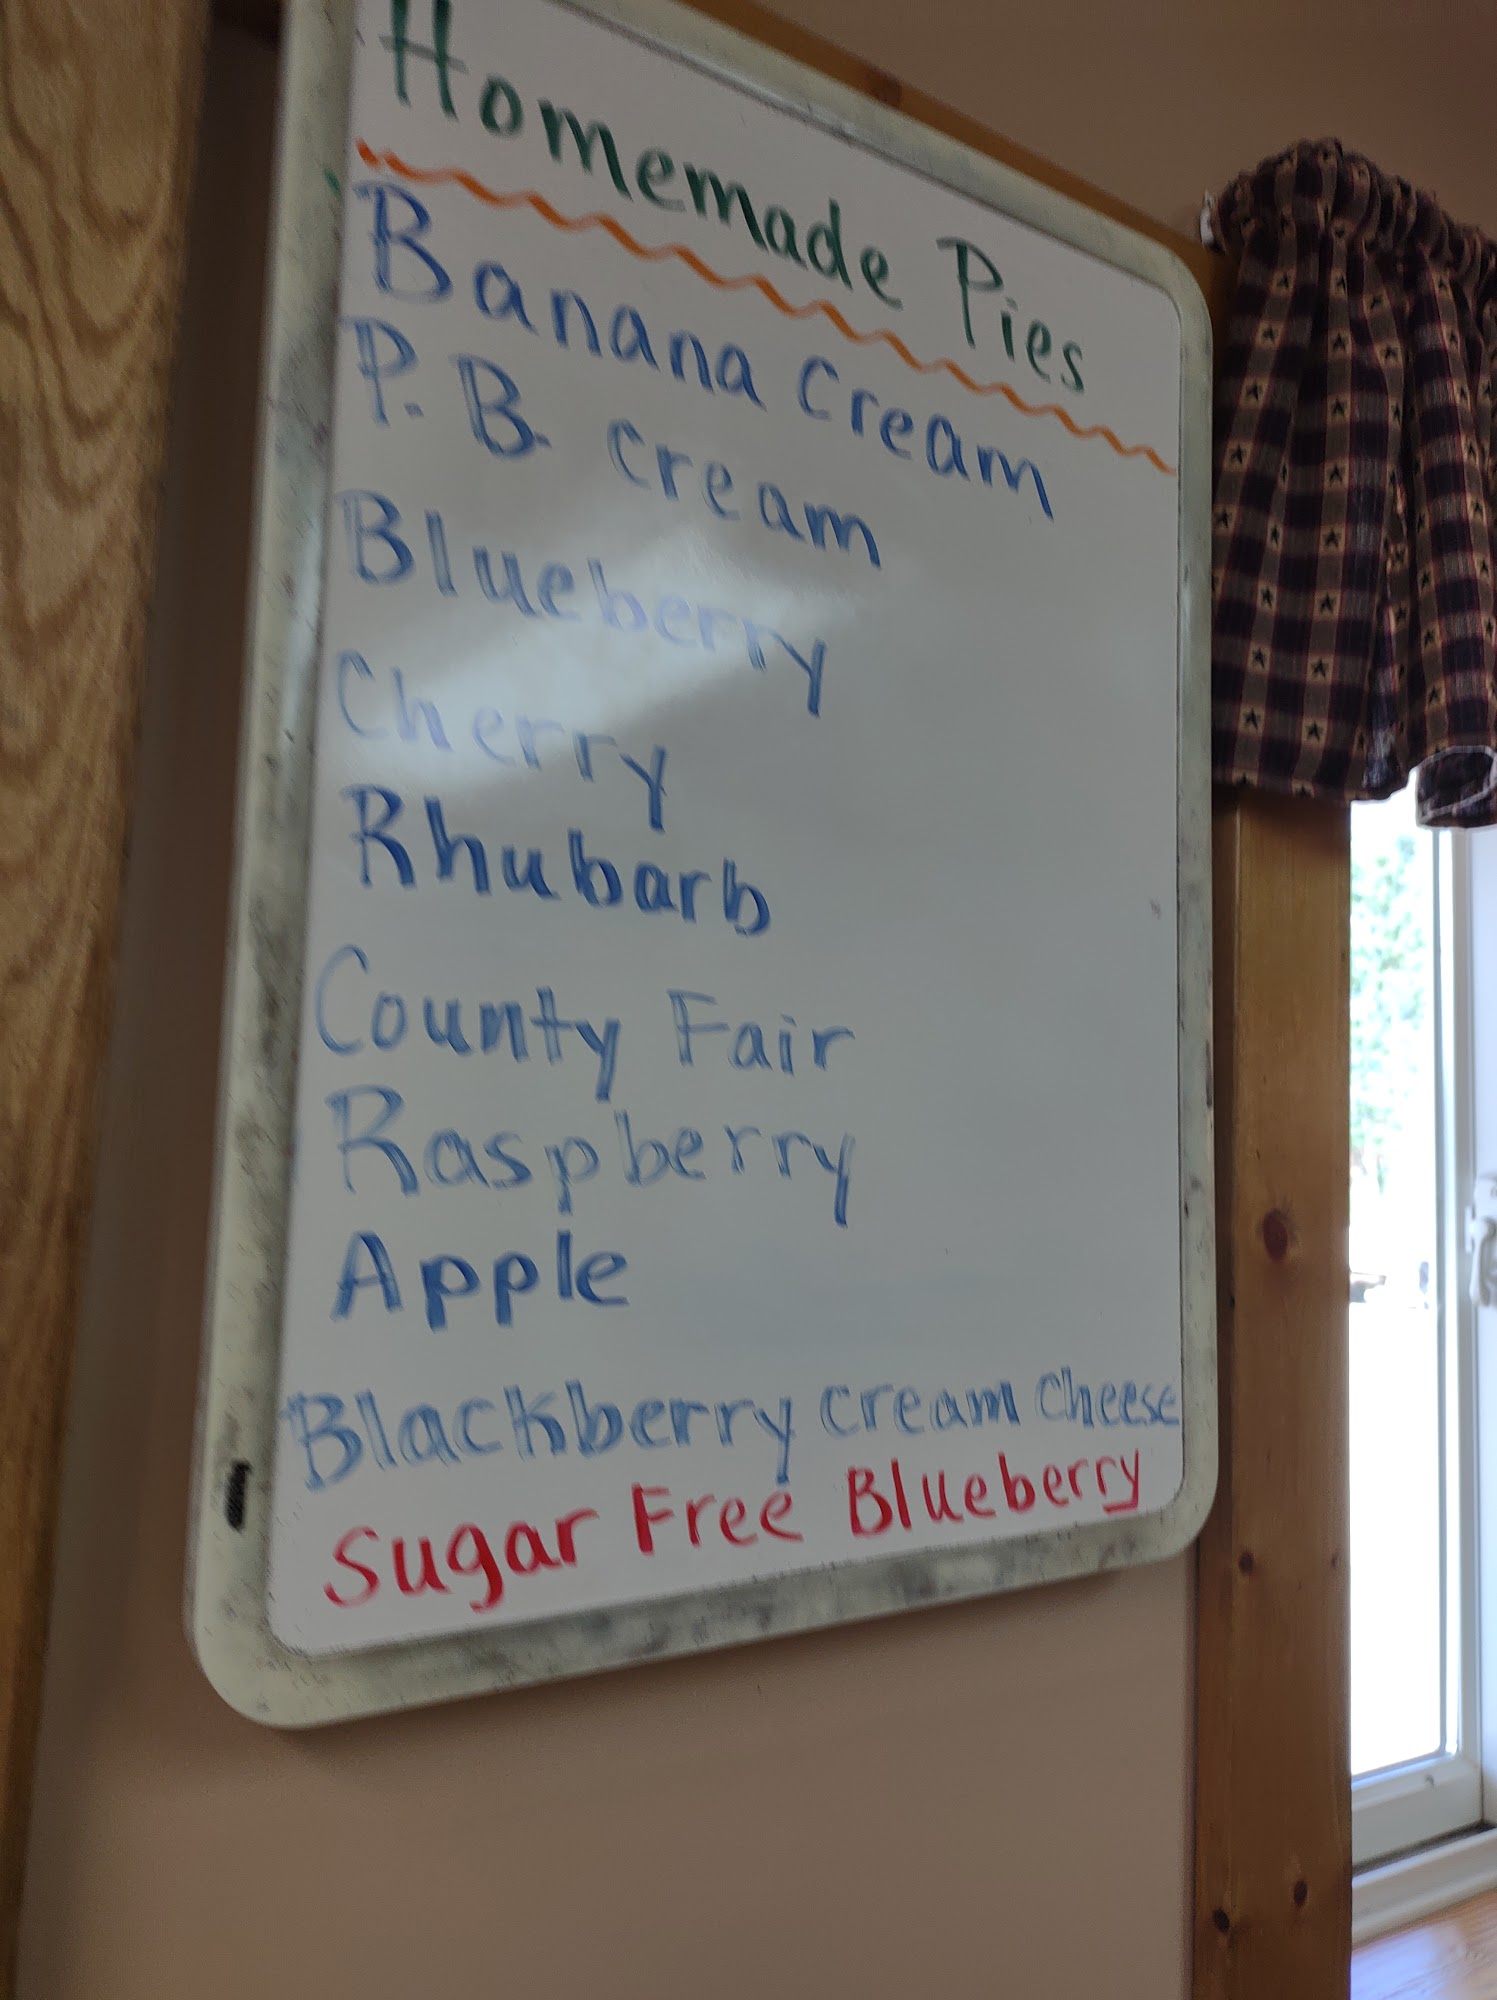 Homemade Pies
Banana Cream
P.B. Cream
Blueberry
Cherry
Rhubarb
County Fair
Raspberry
Apple
Blackberry Cream Cheese
Sugar Free Blueberry